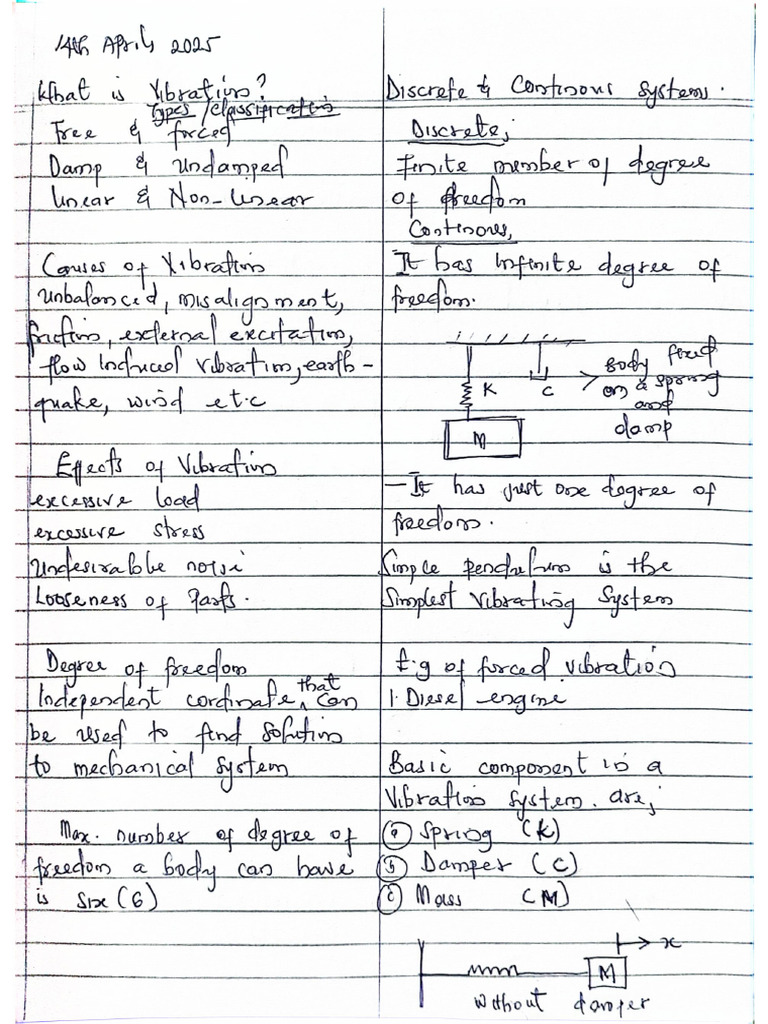 14th April 2025
What is Vibration?
Types/Classification
Free & forced
Damp & Undamped
Linear & Non-linear
Causes of Vibration
Unbalanced, misalignment,
friction, external excitation,
flow induced vibration, earth-
quake, wind etc
Effects of Vibration
excessive load
excessive stress
Undesirable noise
Looseness of Parts.
Degree of freedom
Independent cordinate, that can
be used to find solution
to mechanical system
Max. number of degree of
freedom a body can have
is six (6)
Discrete & Continous systems.
Discrete;
Finite member of degree
of freedom
Continous,
It has infinite degree of
freedom.
K
C
M
body fixed
on a spring
and
damp
- It has just one degree of
freedom.
Simple pendulum is the
Simplest Vibrating System
E.g of forced vibration
1. Diesel engine
Basic component in a
Vibration system are;
(a) Spring (K)
(b) Damper (C)
(c) Mass (M)
x
M
without damper